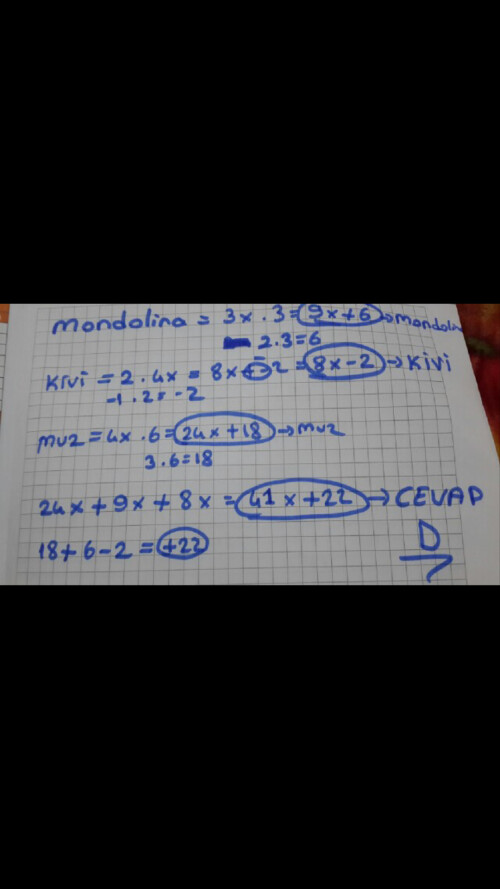 mandalina = 3x . 3 = 9x+6 → mandalin
2.3=6
Kivi = 2 . 4x = 8x - 2 = 8x-2 → Kivi
-1 . 2 = -2
muz = 4x . 6 = 24x+18 → muz
3.6=18
24x + 9x + 8x = 41x+22 → CEVAP
18+6-2 = +22
D